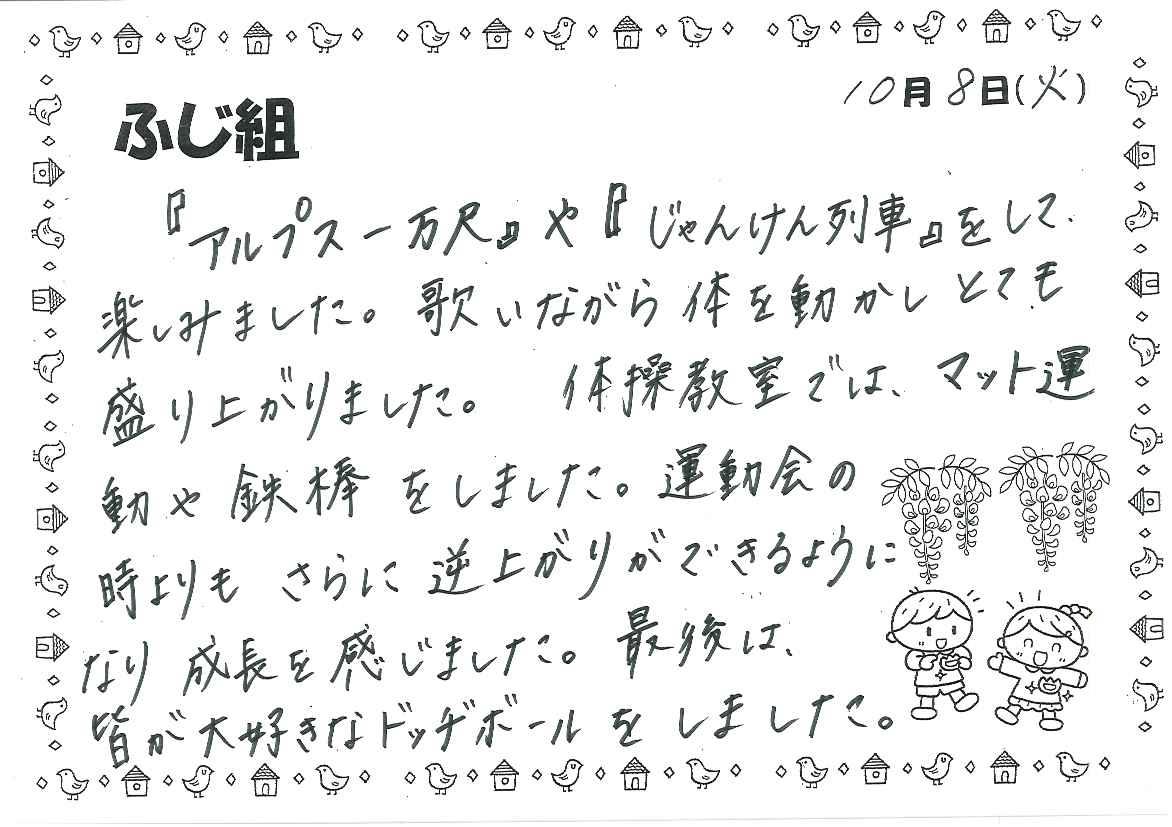 10月8日(火)
ふじ組
『アルプス一万尺』や『じゃんけん列車』をして、
楽しみました。歌いながら体を動かしとても
盛り上がりました。 体操教室では、マット運
動や鉄棒をしました。運動会の
時よりも さらに逆上がりができるように
なり成長を感じました。最後は、
皆が大好きなドッヂボールをしました。